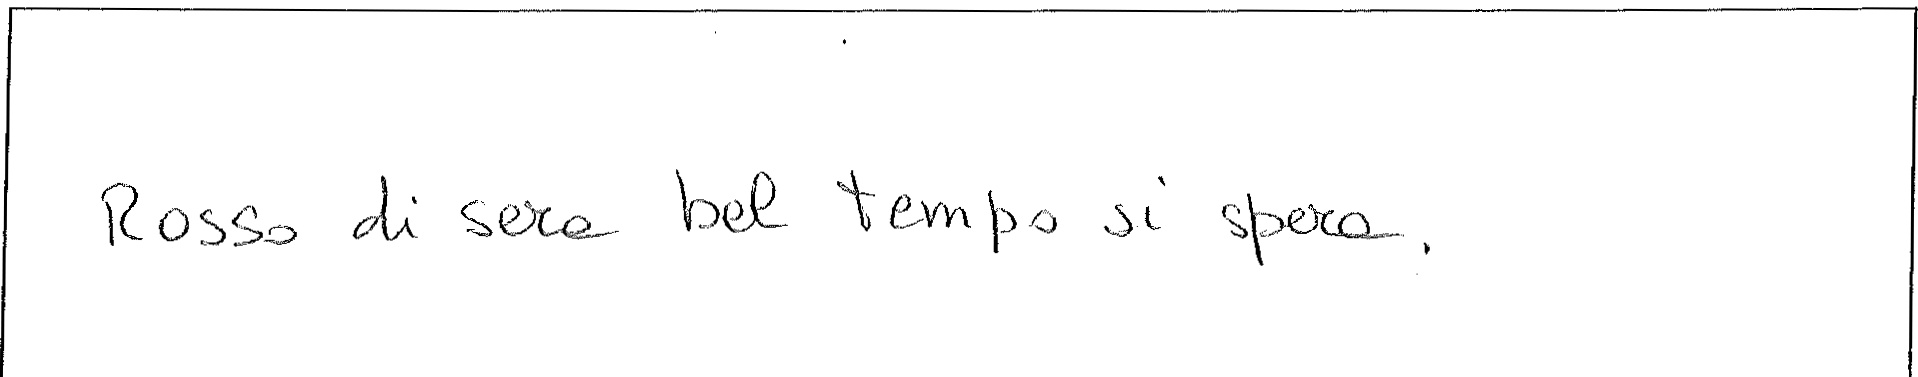 Rosso di sera bel tempo si spera.